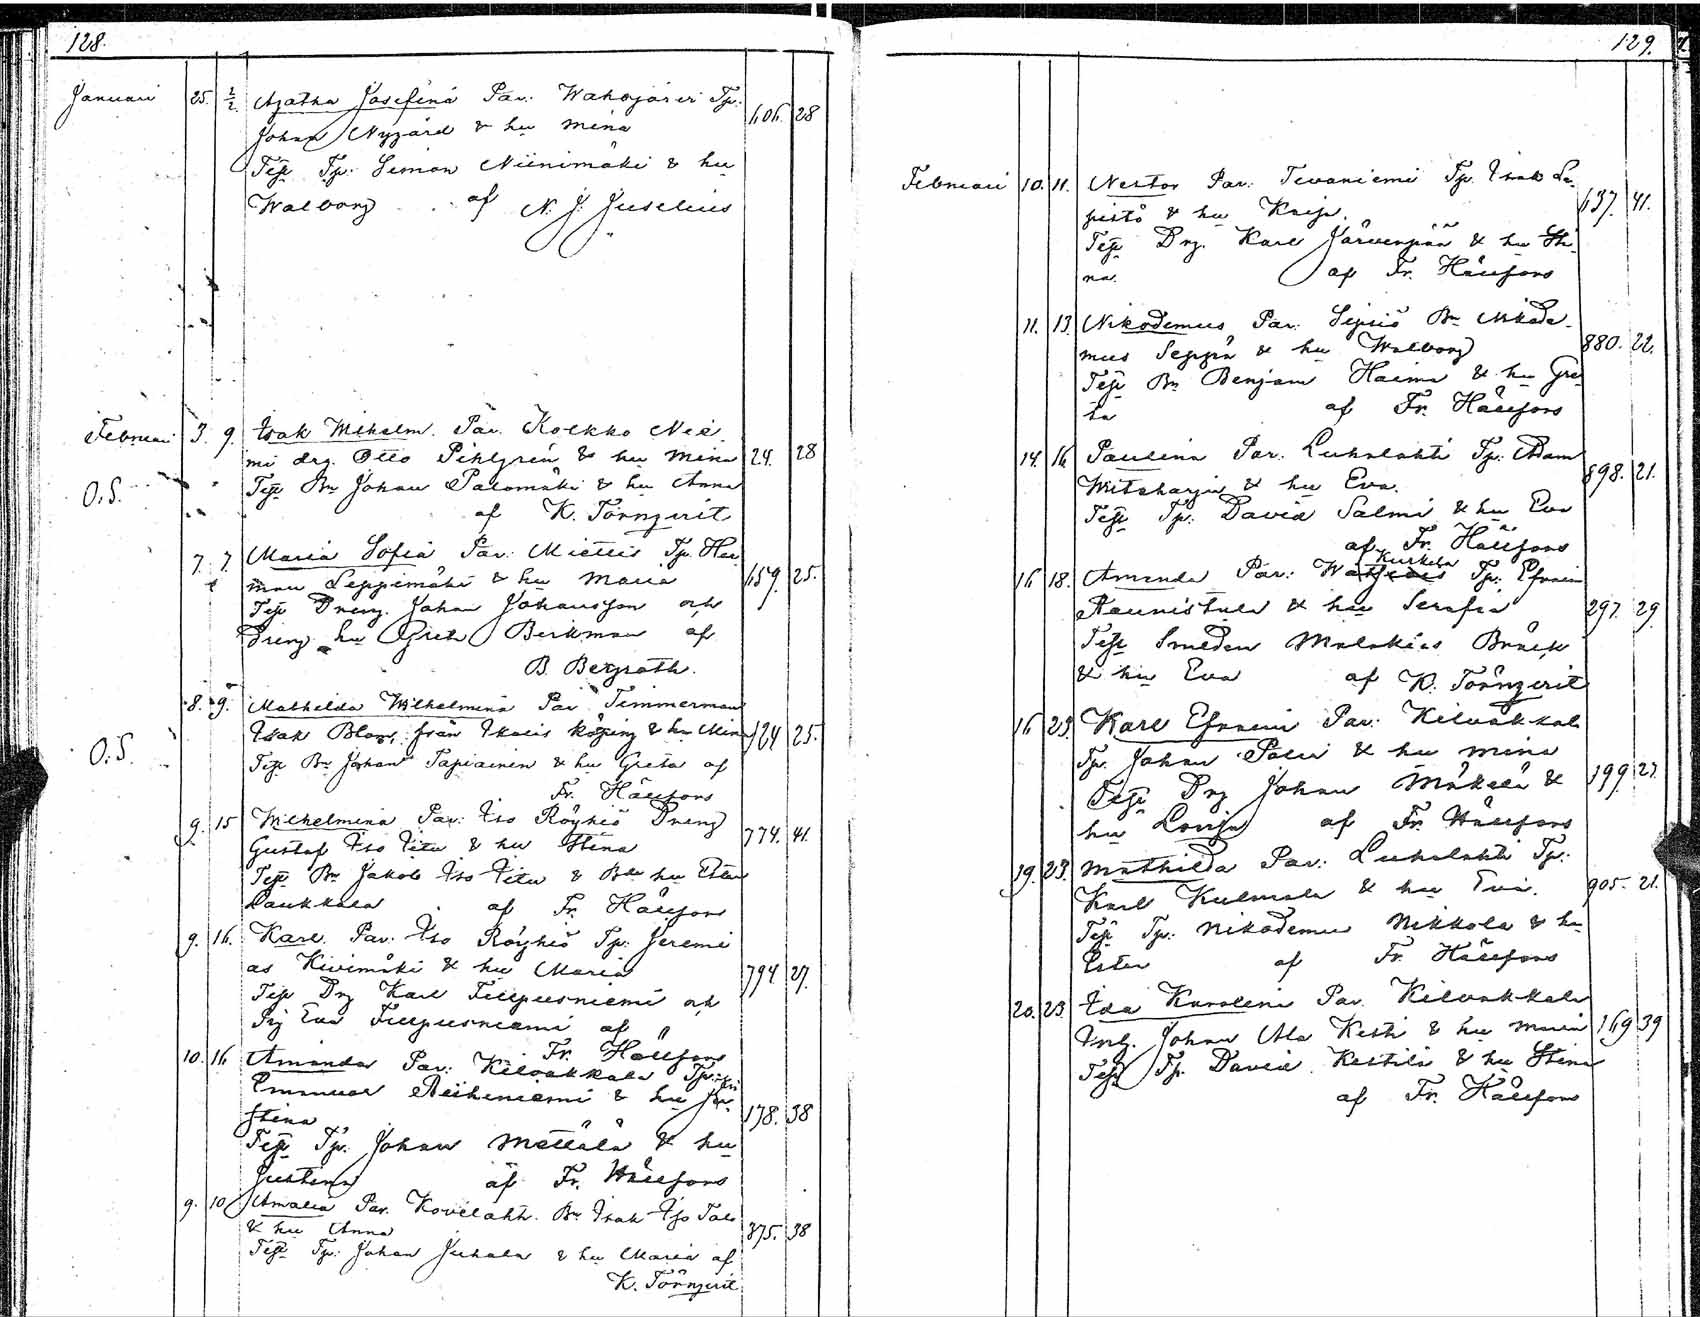 128.
Januari 25. 2/2. Agatha Josefina Par: Wahojärvi Tp:
Johan Nygård & hu Mina 606. 28
Test Tp: Simon Niinimäki & hu
Walborg af N. J. Juselius
Februari 3. 9. Isak Wilhelm. Par. Kolkko Nie
mi drg. Otto Pihlgrén & hu Mina 24. 28
O.S. Test Bn Johan Palomäki & hu Anna
af K. Törnqvist
7. 7. Maria Sofia Par: Miettis Tp. Her
man Leppimäki & hu Maria 659. 25.
Test Dreng. Johan Johansson och
Dreng hu Greta Berkman af
B. Bergroth.
8. 9. Mathilda Wilhelmina Par Timmerman
Isak Blom, från Ikalis köping & hu Mina 124 25.
O.S. Test Bn Johan Tapiainen & hu Greta af
Fr. Hällfors
9. 15 Wilhelmina Par: Iso Röyhiö Dreng
Gustaf Iso Iitu & hu Stina 774. 41.
Test Bn Jakob Iso Iitu & Bn hu Ester
Laukkala af Fr. Hällfors
9. 16. Karl. Par: Iso Röyhiö Tp: Jeremi
as Kivimäki & hu Maria 794 27.
Test Drg Karl Filpusniemi och
Pig Eva Filpusniemi af
Fr. Hällfors
10. 16 Amanda Par: Kilvakkala Tp:
Emanuel Reikeniemi & hu
stina 178. 38
Test Tp: Johan Mettälä & hu
Justina af Fr. Hällfors
9. 10 Amalia Par. Kovelaht. Bn Isak Iso
& hu Anna 875. 38
Test Tp: Johan Juhala & hu Maria af
K. Törnqvist
129.
Februari 10. 11. Nestor Par: Tevaniemi Tp. Isak Le-
pistö & hu Kaisa. 637. 41.
Test Drg. Karl Järvenpää & hu Sti-
na. af Fr. Hällfors
11. 13. Nikodemus Par: Sipsiö Bn Nikode-
mus Seppä & hu Walborg 880. 22.
Test Bn Benjam Haima & hu Gre-
ta af Fr. Hällfors
14. 16 Paulina Par: Luhalahti Tp: Adam
Witaharju & hu Eva. 898. 21.
Test Tp: David Salmi & hu Eva
af Fr. Hällfors
Kurkela
16 18. Amanda Par: Tp: Efraim
Raunistula & hu Serafia 297. 29.
Test Smeden Malakias Bräck
& hu Eva af K. Törnqvist
16 23 Karl Efraim Par: Kilvakkala
Tp. Johan Palu & hu Mina
Test Drg Johan Mäkelä & 199. 27.
hu Lovisa af Fr. Hällfors
19. 23. Mathilda Par: Luhalahti Tp:
Karl Kulmala & hu Eva. 905. 21.
Test Tp: Nikodemus Nikkola & hu
Ester af Fr. Hällfors
20. 23. Ida Karolina Par. Kilvakkala
Johan Ala Kesti & hu Maria 169 39
Test Tp. David Kestilä & hu Stina
af Fr. Hällfors